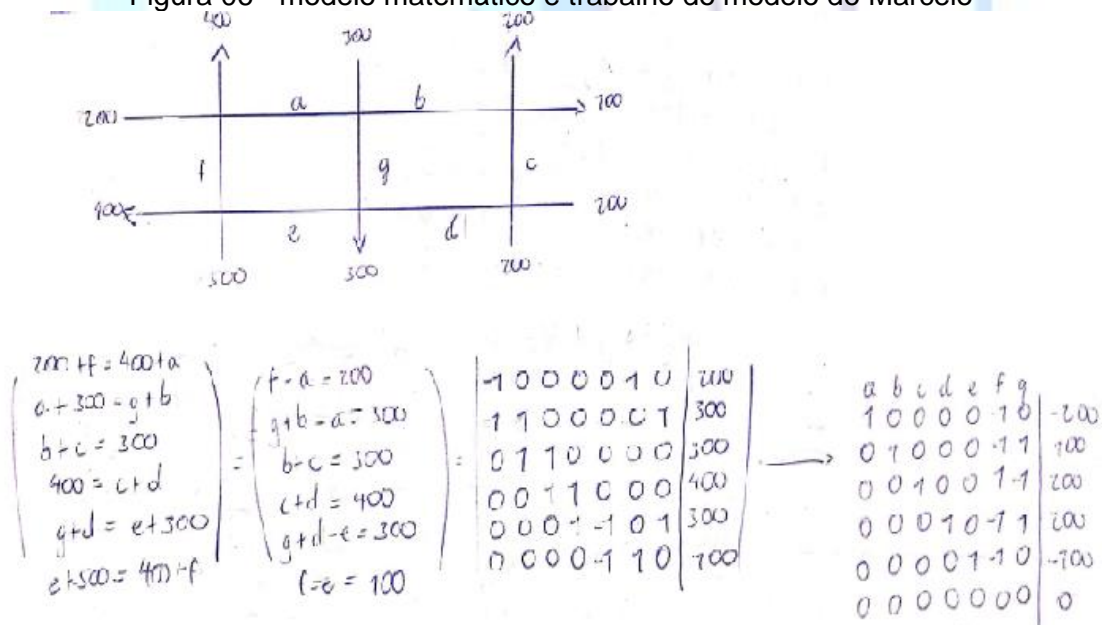 Figura 06 - modelo matemático e trabalho do modelo do Marcelo
400
300
200
200
a
b
100
f
g
c
400
200
e
d
500
300
200
200 + f = 400 + a
a + 300 = g + b
b + c = 300
400 = c + d
g + d = e + 300
e + 500 = 400 + f
=
f - a = 200
g + b - a = 300
b + c = 300
c + d = 400
g + d - e = 300
f - e = 100
=
-1 0 0 0 0 1 0 | 200
-1 1 0 0 0 0 1 | 300
0 1 1 0 0 0 0 | 300
0 0 1 1 0 0 0 | 400
0 0 0 1 -1 0 1 | 300
0 0 0 0 -1 1 0 | 100
a b c d e f g
1 0 0 0 0 -1 0 | -200
0 1 0 0 0 -1 1 | 100
0 0 1 0 0 1 -1 | 200
0 0 0 1 0 -1 1 | 200
0 0 0 0 1 -1 0 | -100
0 0 0 0 0 0 0 | 0